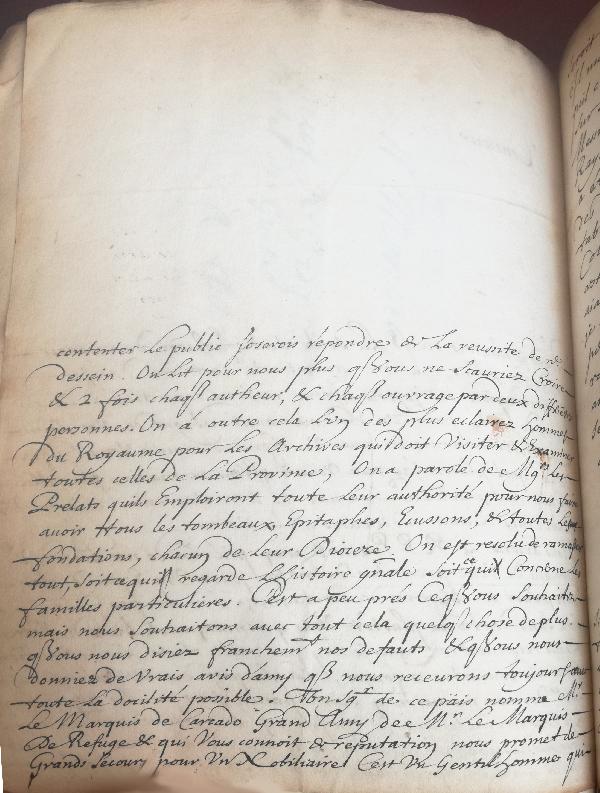 contenter Le public J'oserois répondre de La reussite de nre
dessein. On Lit pour nous plus q Vous ne scauriez Croire
& 2 fois chaq autheur, & chaq ouvrage par deux differetes
personnes. On a outre cela L'vn des plus eclairez hommes
du Royaume pour Les Archives qui doit Visiter & Examiner
toutes celles de La Province, On a parole de Mgrs Les
Prelats quils Emploiront toute Leur authorité pour nous faire
avoir ttous les tombeaux, Epitaphes, Ecussons, & toutes Les
fondations, chacun de Leur Diocexe. On est resolu de ramasser
tout, soit ce qui regarde L'histoire gnale soit ce qui Concerne Les
familles particulieres. C'est a peu prés Ce q Vous Souhaitez
mais nous Souhaitons avec tout cela quelq chose de plus.
q Vous nous disiez franchemt nos defauts & q Vous nous
donniez de Vrais avis d'amy q nous recevrons toujours avec
toute La docilité possible. Vn Sgr de ce païs nommé Mr
Le Marquis de Carcado Grand Amy de Mr Le Marquis
De Refuge & qui Vous connoit de reputation nous promet de
Grands Secours pour Vn Nobiliaire C'est Vn Gentilhomme qui